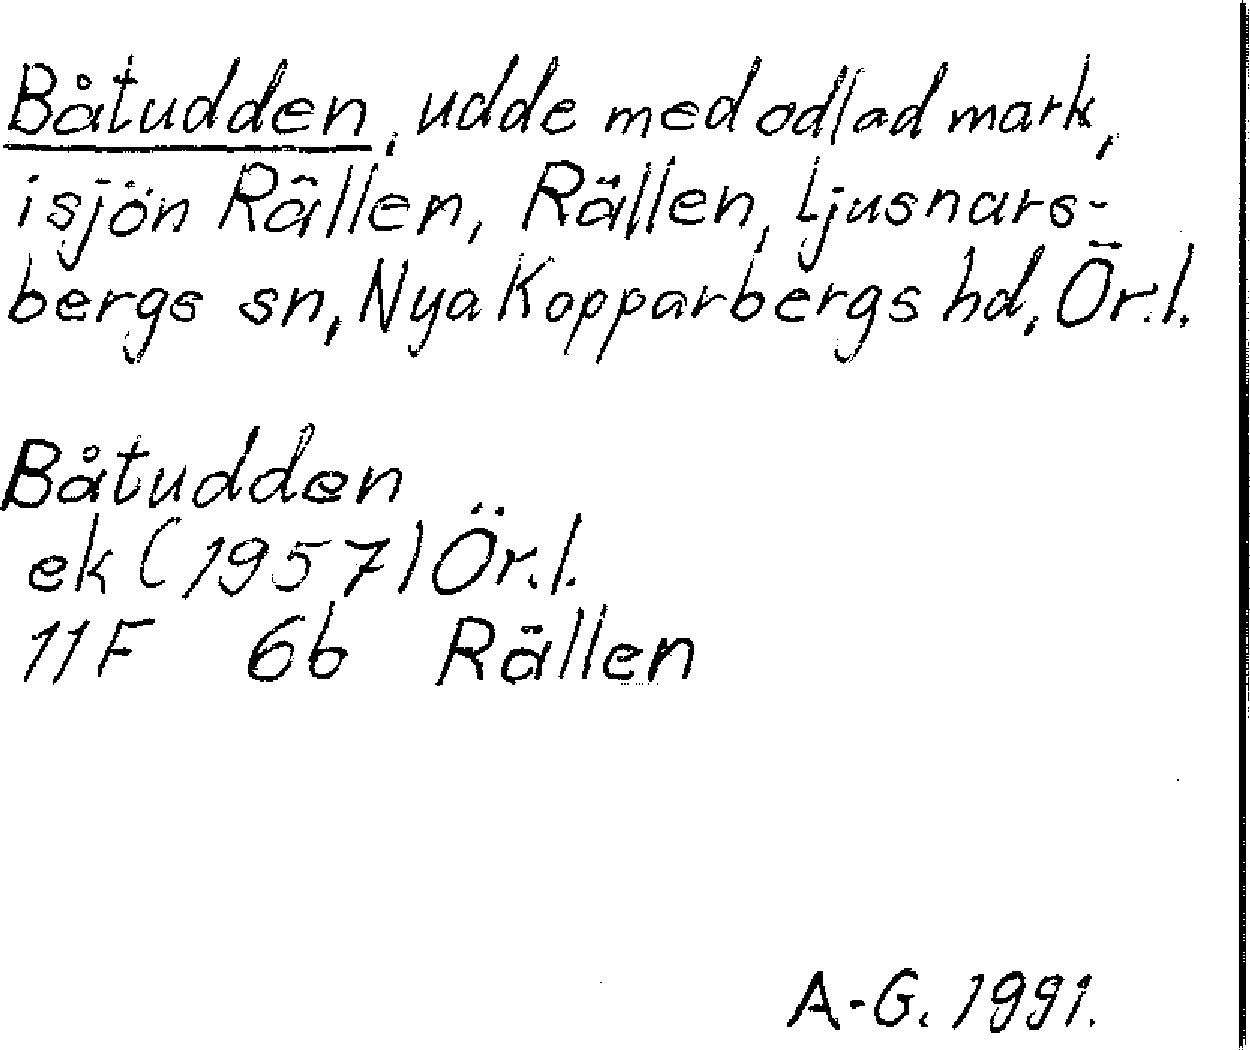 Båtudden, udde med odlad mark,
i sjön Rällen, Rällen, Ljusnars-
bergs sn, Nya Kopparbergs hd, Ör.l.
Båtudden
ek (1957) Ör.l.
11F 6b Rällen
A-G. 1991.